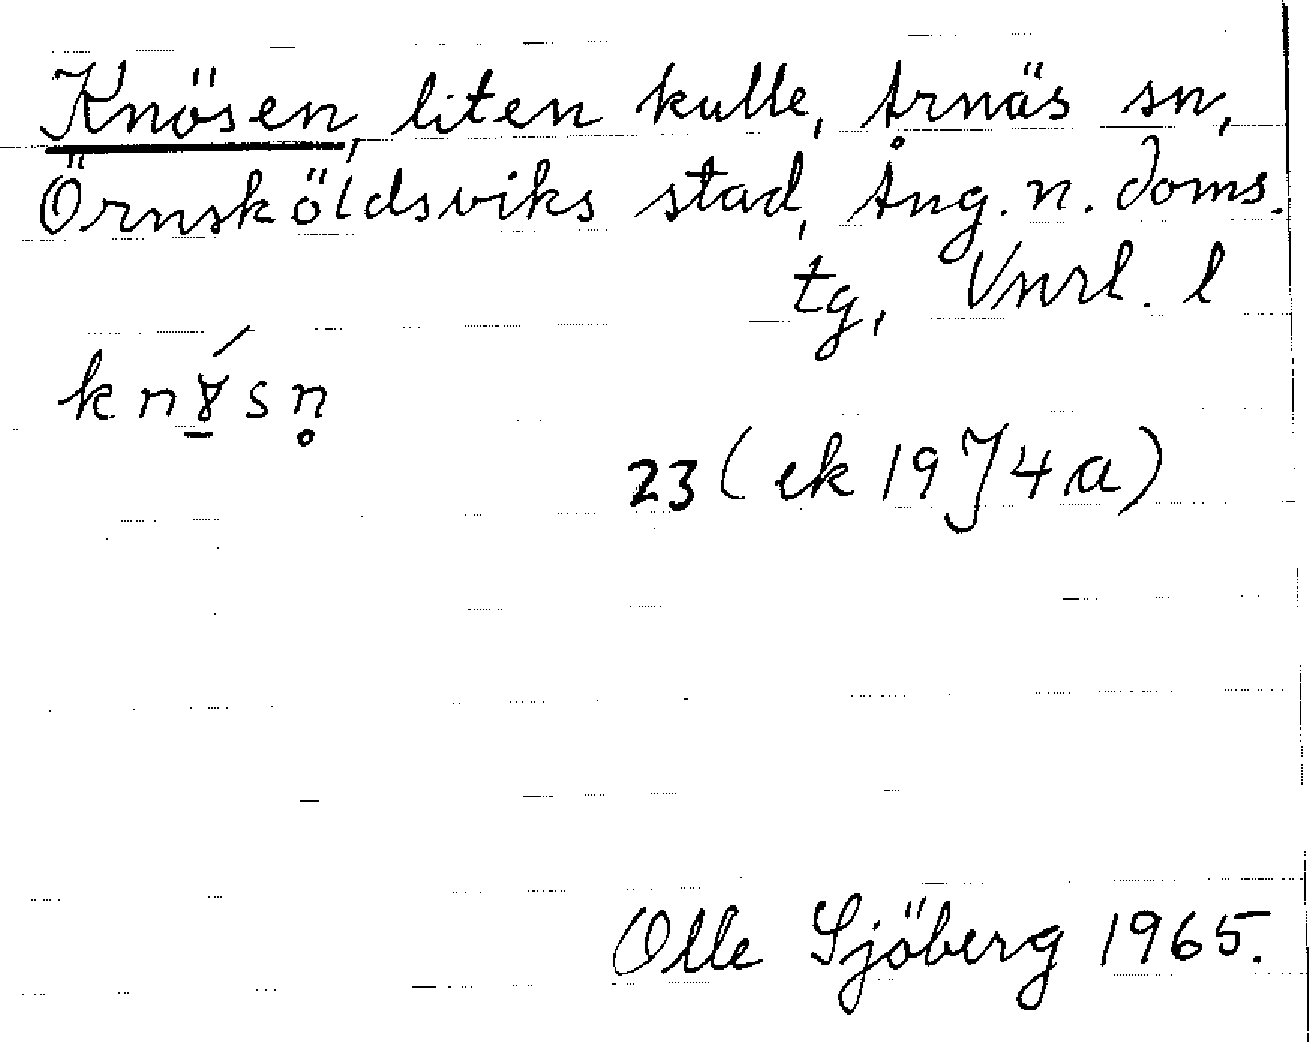 Knösen, liten kulle, Arnäs sn,
Örnsköldsviks stad, Ång. n. doms.
tg, Vnrl. l
23 (ek 19J4a)
Olle Sjöberg 1965.